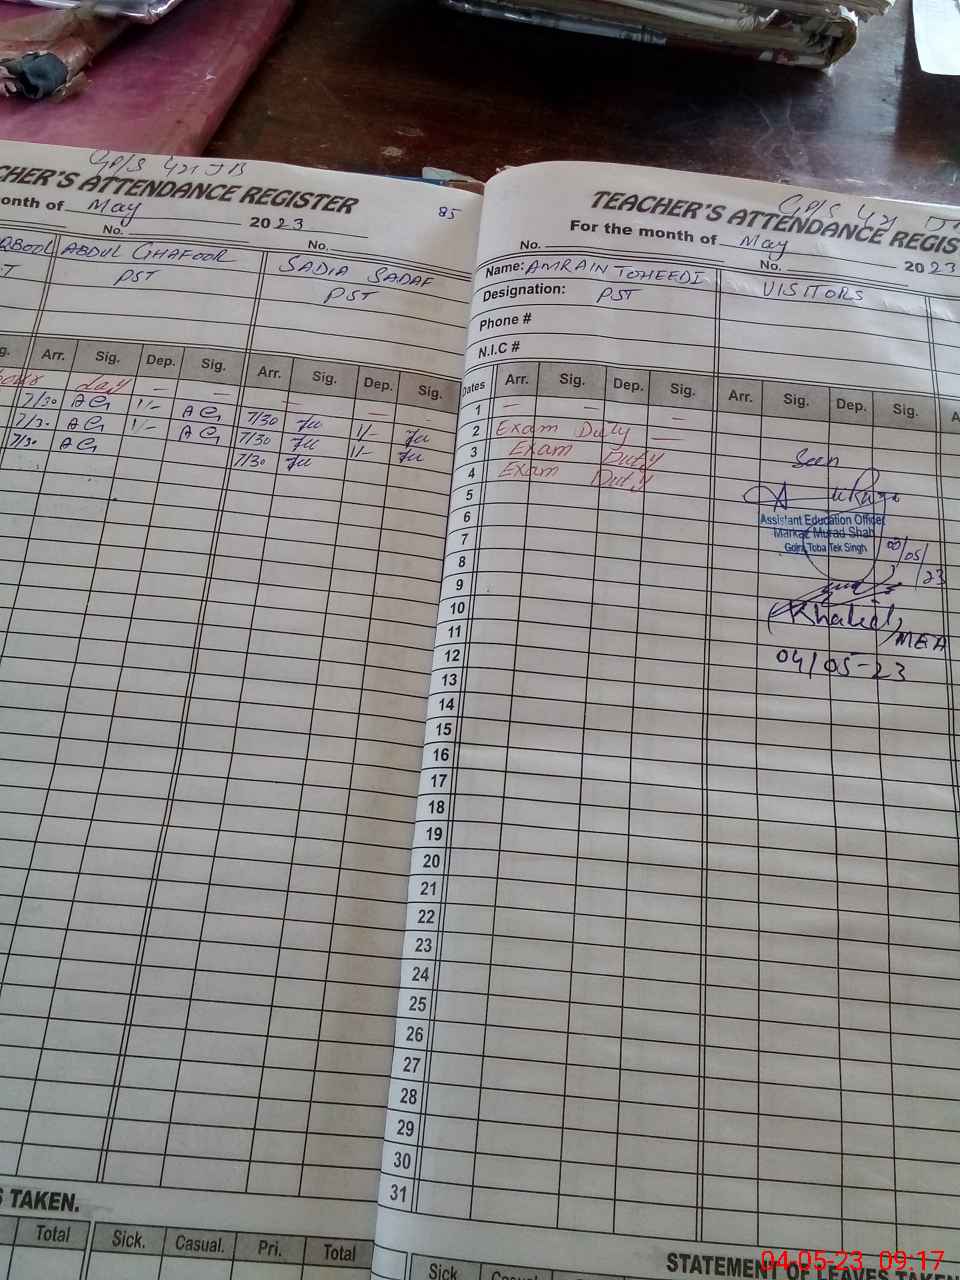 GP/S 421 JB
CHER'S ATTENDANCE REGISTER
onth of May 2023
85
No. No.
QBOOL ABDUL GHAFOOR SADIA SADAF
T PST PST
g. Arr. Sig. Dep. Sig. Arr. Sig. Dep. Sig.
bour day - - - - - -
7/30 AG 1/- AG 7/30 1/-
7/30 AG 1/- AG 7/30 1/-
7/30 AG 7/30
S TAKEN.
Total Sick. Casual. Pri. Total
GP/S 421 J
TEACHER'S ATTENDANCE REGIS
For the month of May 2023
No. No.
Name: AMRAIN TOHEEDI VISITORS
Designation: PST
Phone #
N.I.C #
Dates Arr. Sig. Dep. Sig. Arr. Sig. Dep. Sig. A
1 - - -
2 Exam Duty -
3 Exam Duty
4 Exam Duty
5
6
7
8
9
10
11
12
13
14
15
16
17
18
19
20
21
22
23
24
25
26
27
28
29
30
31
Seen
Assistant Education Officer
Markaz Murad Shah
Gojra Toba Tek Singh
/05/23
(Khalid)
MEA
04/05-23
STATEMENT OF LEAVES TAKEN
Sick Casual
04.05-23 09:17